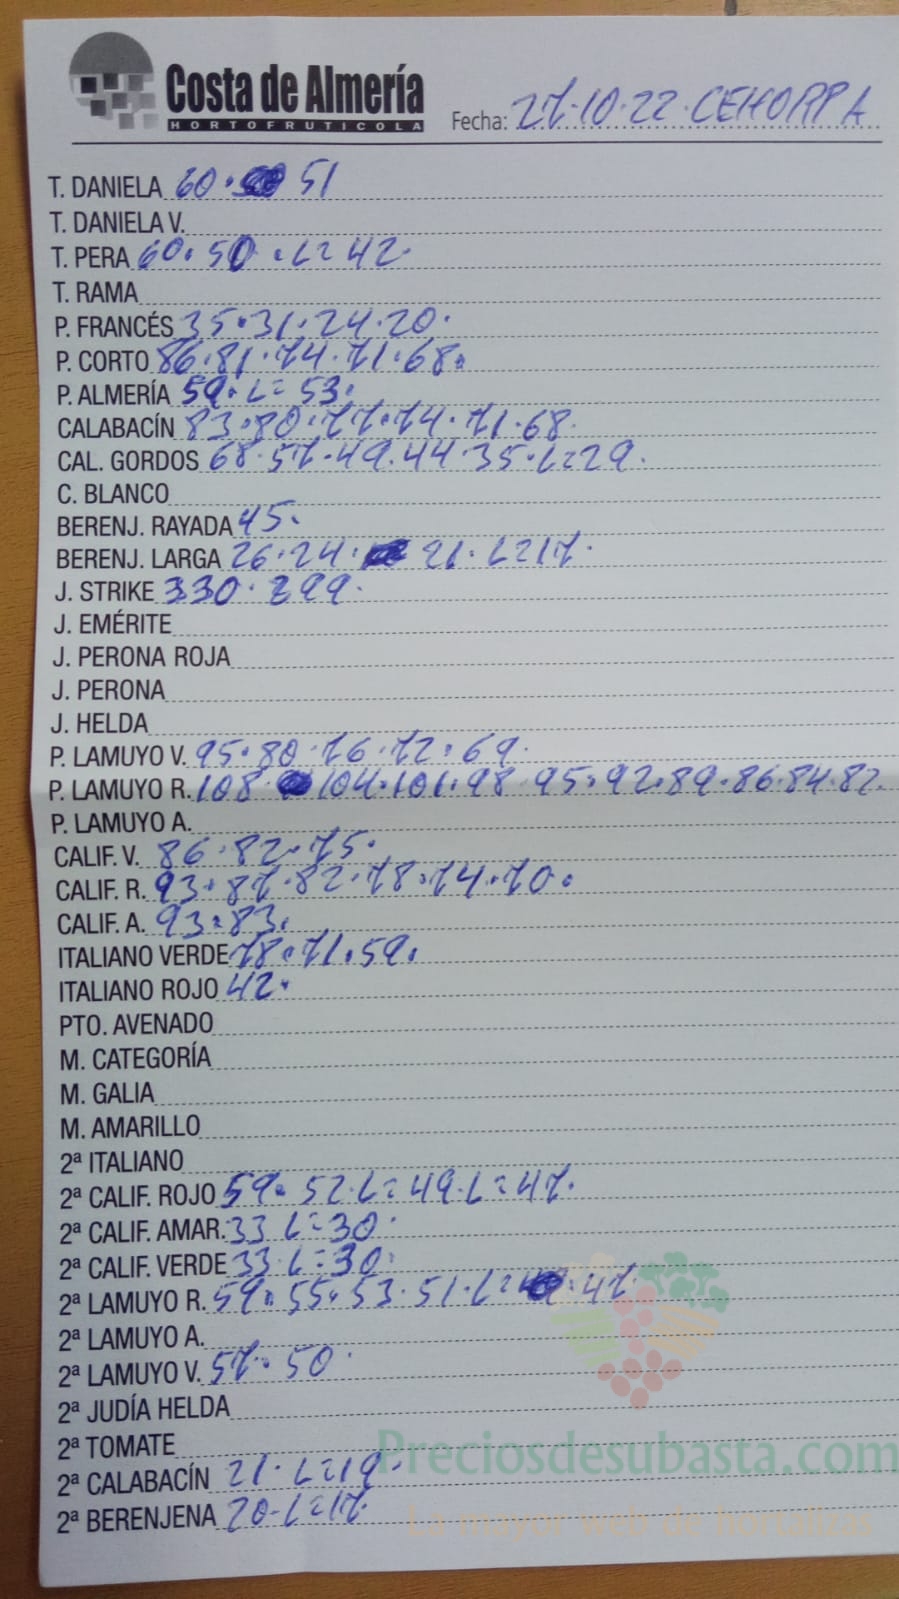 Costa de Almería
HORTOFRUTICOLA
Fecha: 27·10·22· CEHORPA
T. DANIELA 60· 51
T. DANIELA V.
T. PERA 60· 50 · L= 42·
T. RAMA
P. FRANCÉS 35·31·24·20·
P. CORTO 86·81·74·71·68·
P. ALMERÍA 59· L= 53·
CALABACÍN 83·80·77·74·71·68·
CAL. GORDOS 68·57·49·44·35·L=29·
C. BLANCO
BERENJ. RAYADA 45·
BERENJ. LARGA 26·24· 21· L=17·
J. STRIKE 330· 299·
J. EMÉRITE
J. PERONA ROJA
J. PERONA
J. HELDA
P. LAMUYO V. 95·80·76·72·69·
P. LAMUYO R. 108· 104·101·98·95·92·89·86·84·82·
P. LAMUYO A.
CALIF. V. 86·82·75·
CALIF. R. 93·87·82·78·74·70·
CALIF. A. 93·83·
ITALIANO VERDE 78·71·59·
ITALIANO ROJO 42·
PTO. AVENADO
M. CATEGORÍA
M. GALIA
M. AMARILLO
2ª ITALIANO
2ª CALIF. ROJO 59· 52·L=49·L=47·
2ª CALIF. AMAR. 33 L=30·
2ª CALIF. VERDE 33·L=30·
2ª LAMUYO R. 59·55·53·51·L= 47·
2ª LAMUYO A.
2ª LAMUYO V. 57· 50·
2ª JUDÍA HELDA
2ª TOMATE
Preciosdesubasta.com
2ª CALABACÍN 21· L=19·
2ª BERENJENA 20·L=17·
La mayor web de hortalizas